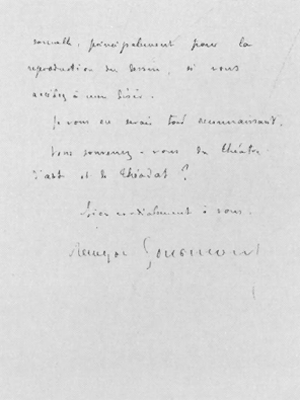 connaît, principalement pour la
reproduction du dessin, si vous
accédez à mon désir.
Je vous en serais tout reconnaissant.
Vous souvenez-vous du théâtre
d'art et de Théodat ?
Bien cordialement à vous.
Remy de Gourmont